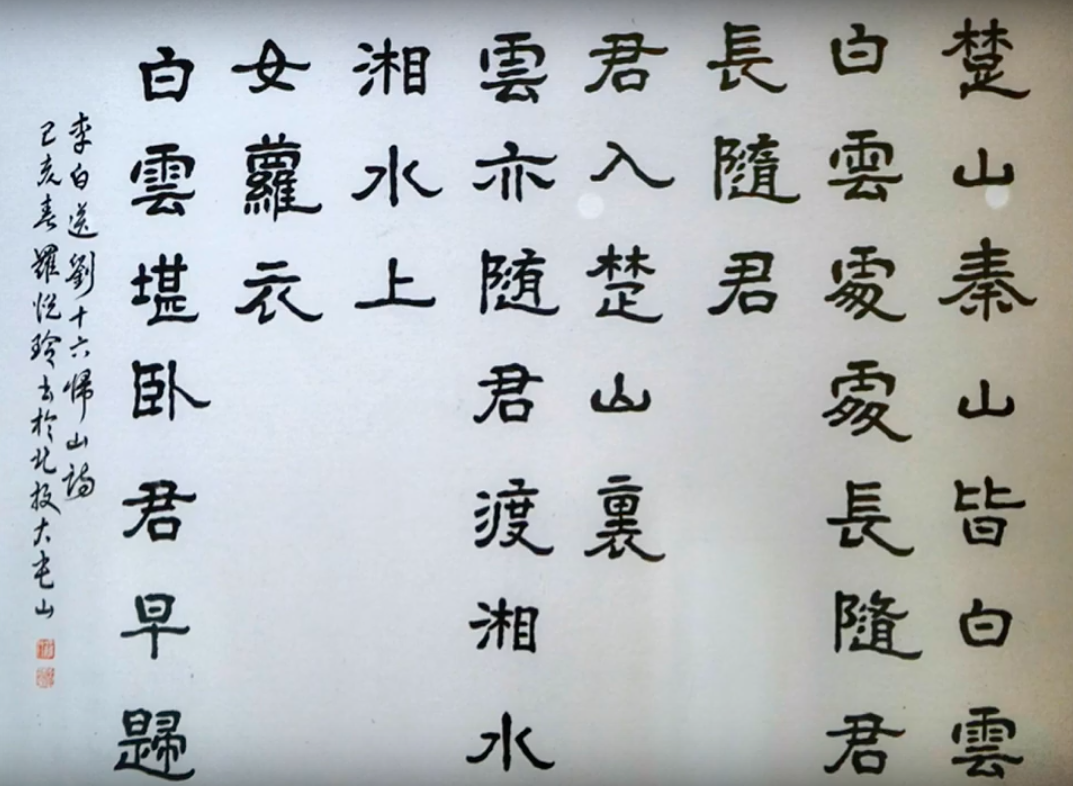 楚山秦山皆白雲
白雲處處長隨君
長隨君
君入楚山裏
雲亦随君渡湘水
湘水上
女蘿衣
白雲堪卧君早歸
李白送劉十六歸山詩
己亥春羅悦玲書於北投大屯山